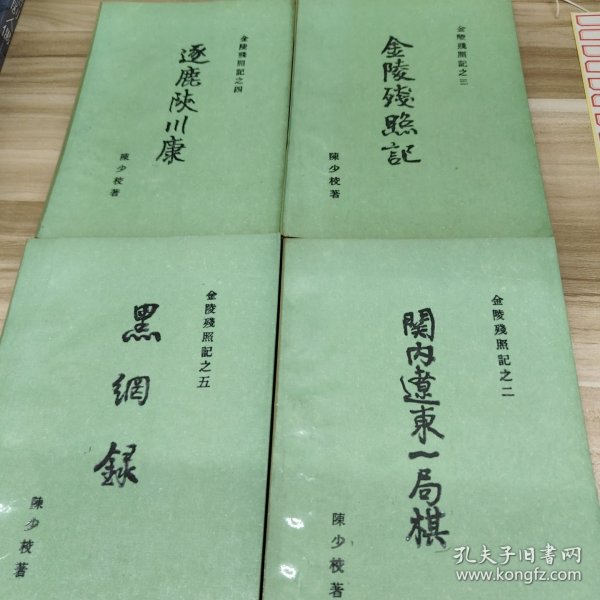 金陵殘照記之四
逐鹿陝川康
陳少校著
金陵殘照記之三
金陵殘照記
陳少校著
金陵殘照記之五
黑網録
陳少校著
金陵殘照記之二
関内遼東一局棋
陳少校著
孔夫子旧书网
www.kongfz.com